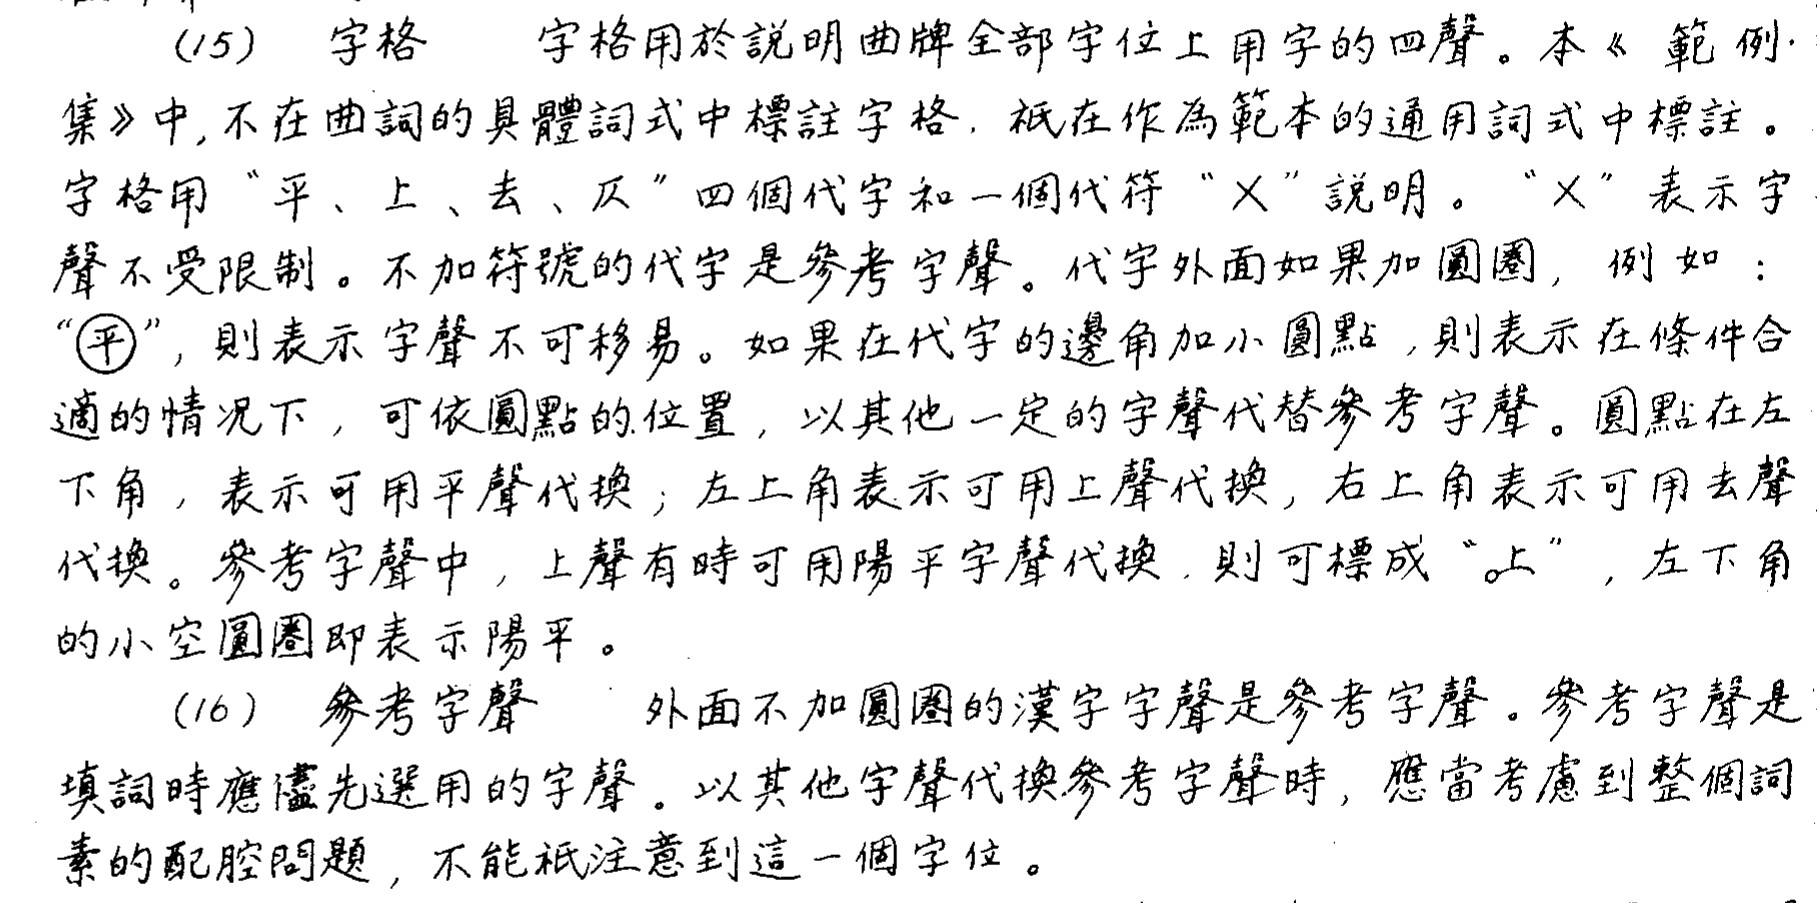 (15) 字格 字格用於説明曲牌全部字位上用字的四聲。本《範例
集》中,不在曲詞的具體詞式中標註字格,祇在作為範本的通用詞式中標註。
字格用“平、上、去、仄”四個代字和一個代符“×”説明。“×”表示字
聲不受限制。不加符號的代字是參考字聲。代字外面如果加圓圈,例如:
“㊤平”,則表示字聲不可移易。如果在代字的邊角加小圓點,則表示在條件合
適的情况下,可依圓點的位置,以其他一定的字聲代替參考字聲。圓點在左
下角,表示可用平聲代換;左上角表示可用上聲代換,右上角表示可用去聲
代換。參考字聲中,上聲有時可用陽平字聲代換,則可標成“。上”,左下角
的小空圓圈即表示陽平。
(16) 參考字聲 外面不加圓圈的漢字字聲是參考字聲。參考字聲是
填詞時應儘先選用的字聲。以其他字聲代換參考字聲時,應當考慮到整個詞
素的配腔問題,不能祇注意到這一個字位。